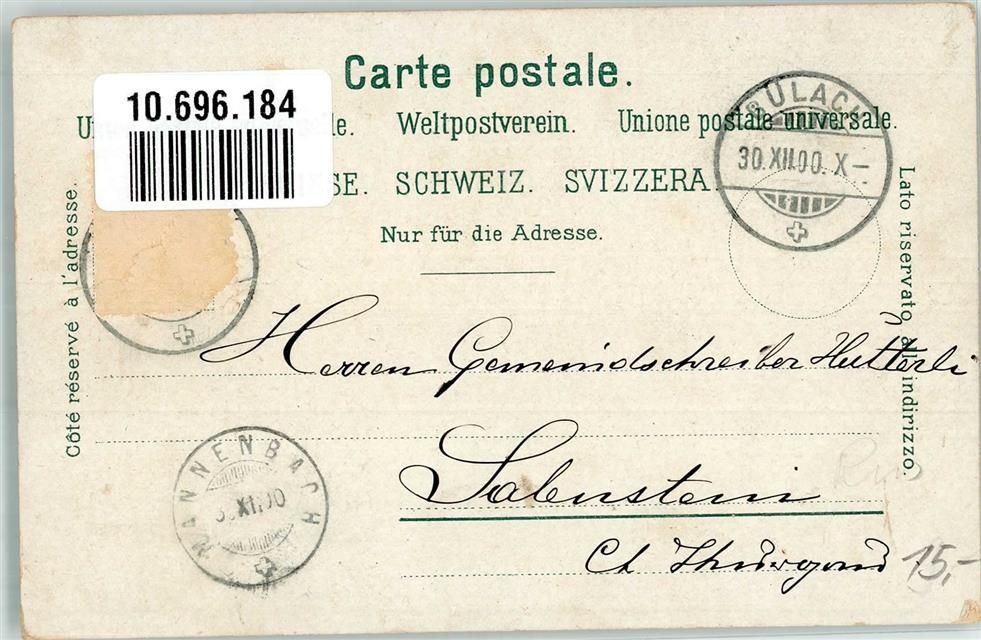 Carte postale.
10.696.184
le. Weltpostverein. Unione postale universale.
SE. SCHWEIZ. SVIZZERA.
Nur für die Adresse.
Côté réservé à l'adresse.
Lato riservato all' indirizzo.
BÜLACH
30.XII.00. X–
Herren Gemeindschreiber Hutterli
Salenstein
Ct Thurgau
MANNENBACH
XII.00
15,-